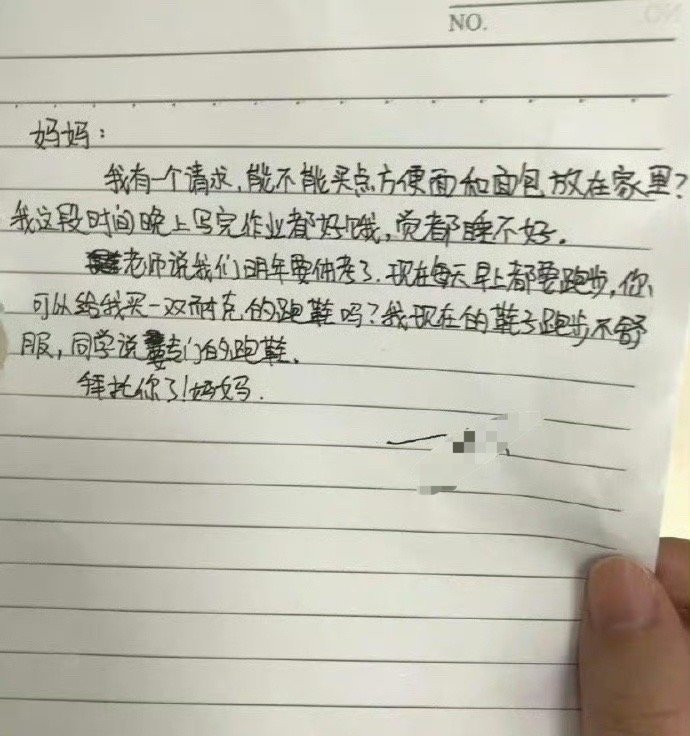 NO.
妈妈:
我有一个请求,能不能买点方便面和面包放在家里?
我这段时间晚上写完作业都好饿,觉都睡不好。
老师说我们明年要体考了.现在每天早上都要跑步,你
可以给我买一双耐克的跑鞋吗?我现在的鞋子跑步不舒
服,同学说要专门的跑鞋。
拜托你了!妈妈.